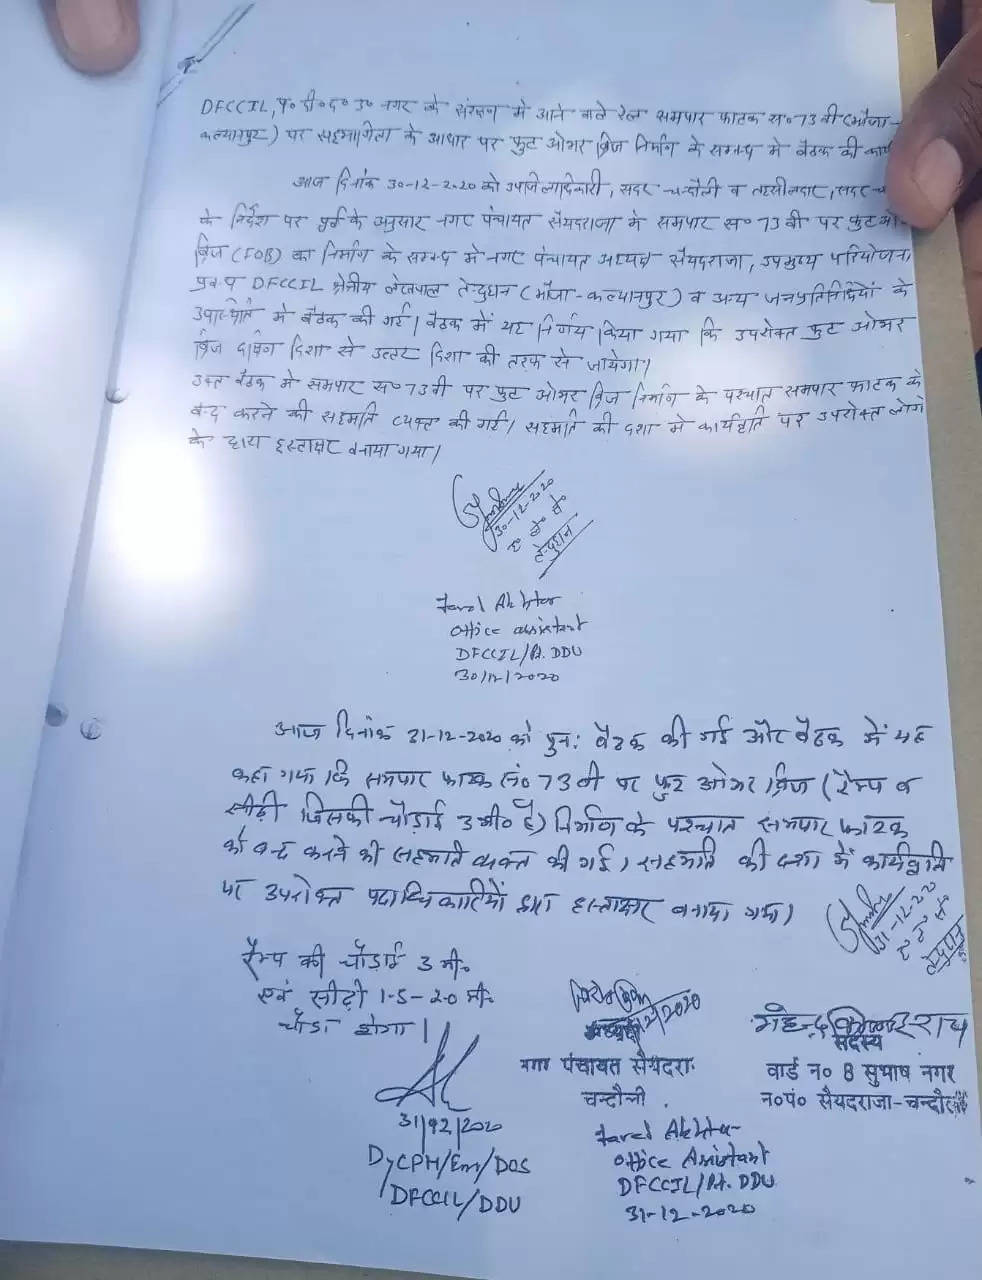 DFCCIL, पं० दी० द० उ० नगर के संरक्षण में आने वाले रेल समपार फाटक स० 73 बी (मौजा-
कल्यानपुर) पर सहभागिता के आधार पर फुट ओभर ब्रिज निर्माण के सम्बन्ध मे बैठक की
आज दिनांक 30-12-2020 को उपजिलाधिकारी, सदर चन्दौली व तहसीलदार, सदर
के निर्देश पर पूर्व के अनुसार नगर पंचायत सैयदराजा मे समपार स० 73 बी पर फुट
ब्रिज (FOB) का निर्माण के सम्बन्ध मे नगर पंचायत अध्यक्ष सैयदराजा, उपमुख्य परियोजना
DFCCIL क्षेत्रीय लेखपाल तेन्दुहान (मौजा-कल्यानपुर) व अन्य जनप्रतिनिधियों के
उपस्थिति मे बैठक की गई। बैठक में यह निर्णय किया गया कि उपरोक्त फुट ओभर
ब्रिज दक्षिण दिशा से उत्तर दिशा की तरफ से जायेगा।
उक्त बैठक मे समपार स० 73 बी पर फुट ओभर ब्रिज निर्माण के पश्चात समपार फाटक के
बन्द करने की सहमति व्यक्त की गई। सहमति की दशा मे कार्यवृत्ति पर उपरोक्त लोगो
के द्वारा हस्ताक्षर बनाया गया।
30-12-2020
तेन्दुहान
Akhtar
Office assistant
DFCCIL/Pt. DDU
30/12/2020
आज दिनांक 31-12-2020 को पुनः बैठक की गई और बैठक में यह
कहा गया कि समपार फाटक सं० 73 बी पर फुट ओभर ब्रिज (रैम्प व
सीढ़ी जिसकी चौड़ाई 3 मी० है) निर्माण के पश्चात समपार फाटक
को बन्द करने की सहमति व्यक्त की गई। सहमति की दशा में कार्यवृत्ति
पर उपरोक्त पदाधिकारियों द्वारा हस्ताक्षर बनाया गया।
31-12-2020
तेन्दुहान
रैम्प की चौड़ाई 3 मी०
एवं सीढ़ी 1.5-2.0 मी०
चौड़ा होगा।
31/12/2020
DyCPM/Em/DOS
DFCCIL/DDU
12/2020
नगर पंचायत सैयदरा
चन्दौली
Akhtar
Office Assistant
DFCCIL/Pt. DDU
31-12-2020
राय
सदस्य
वार्ड न० 8 सुभाष नगर
न०पं० सैयदराजा-चन्दौली